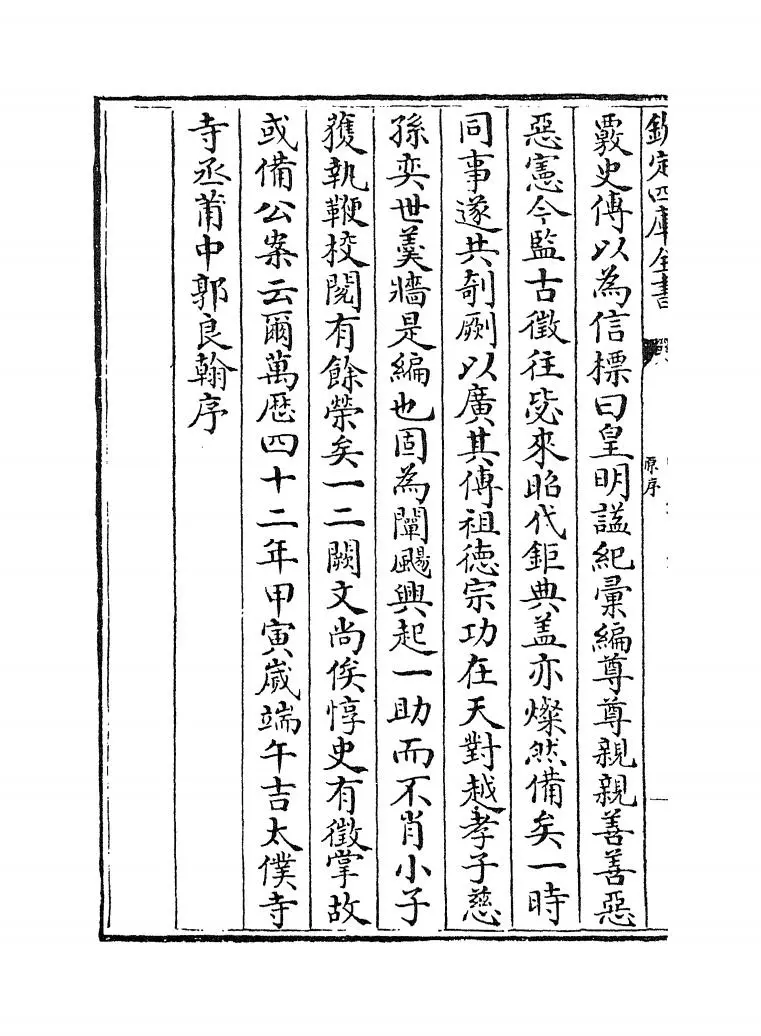 欽定四庫全書
原序
覈史傳以為信標曰皇明諡紀彚編尊尊親親善善惡
惡憲今監古徵往毖來昭代鉅典盖亦燦然備矣一時
同事遂共剞劂以廣其傳祖德宗功在天對越孝子慈
孫奕世羹牆是編也固為闡颺興起一助而不肖小子
獲執鞭校閱有餘榮矣一二闕文尚俟惇史有徵掌故
或備公案云爾萬歴四十二年甲寅歲端午吉太僕寺
寺丞莆中郭良翰序